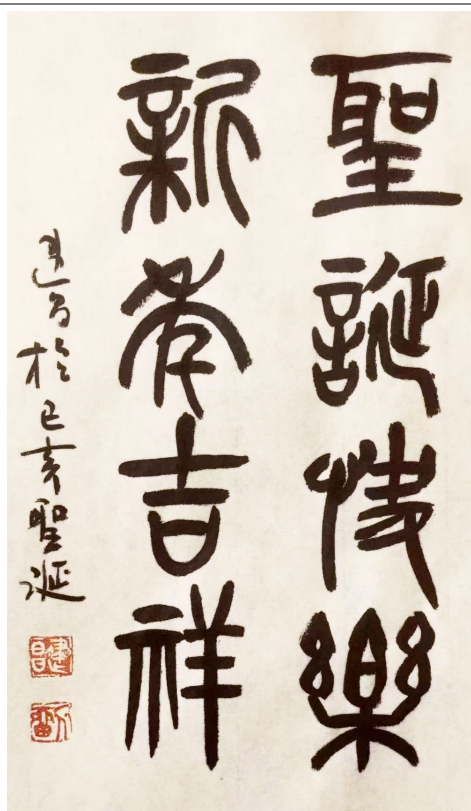 聖誕快樂
新年吉祥
建昌於己亥聖誕